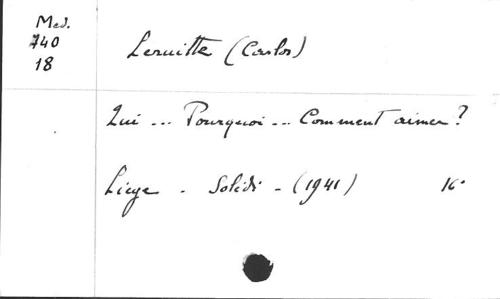 Med.
740
18
Leruitte (Carlos)
Qui ... Pourquoi ... Comment aimer ?
Liège - Solédi - (1941) 16°